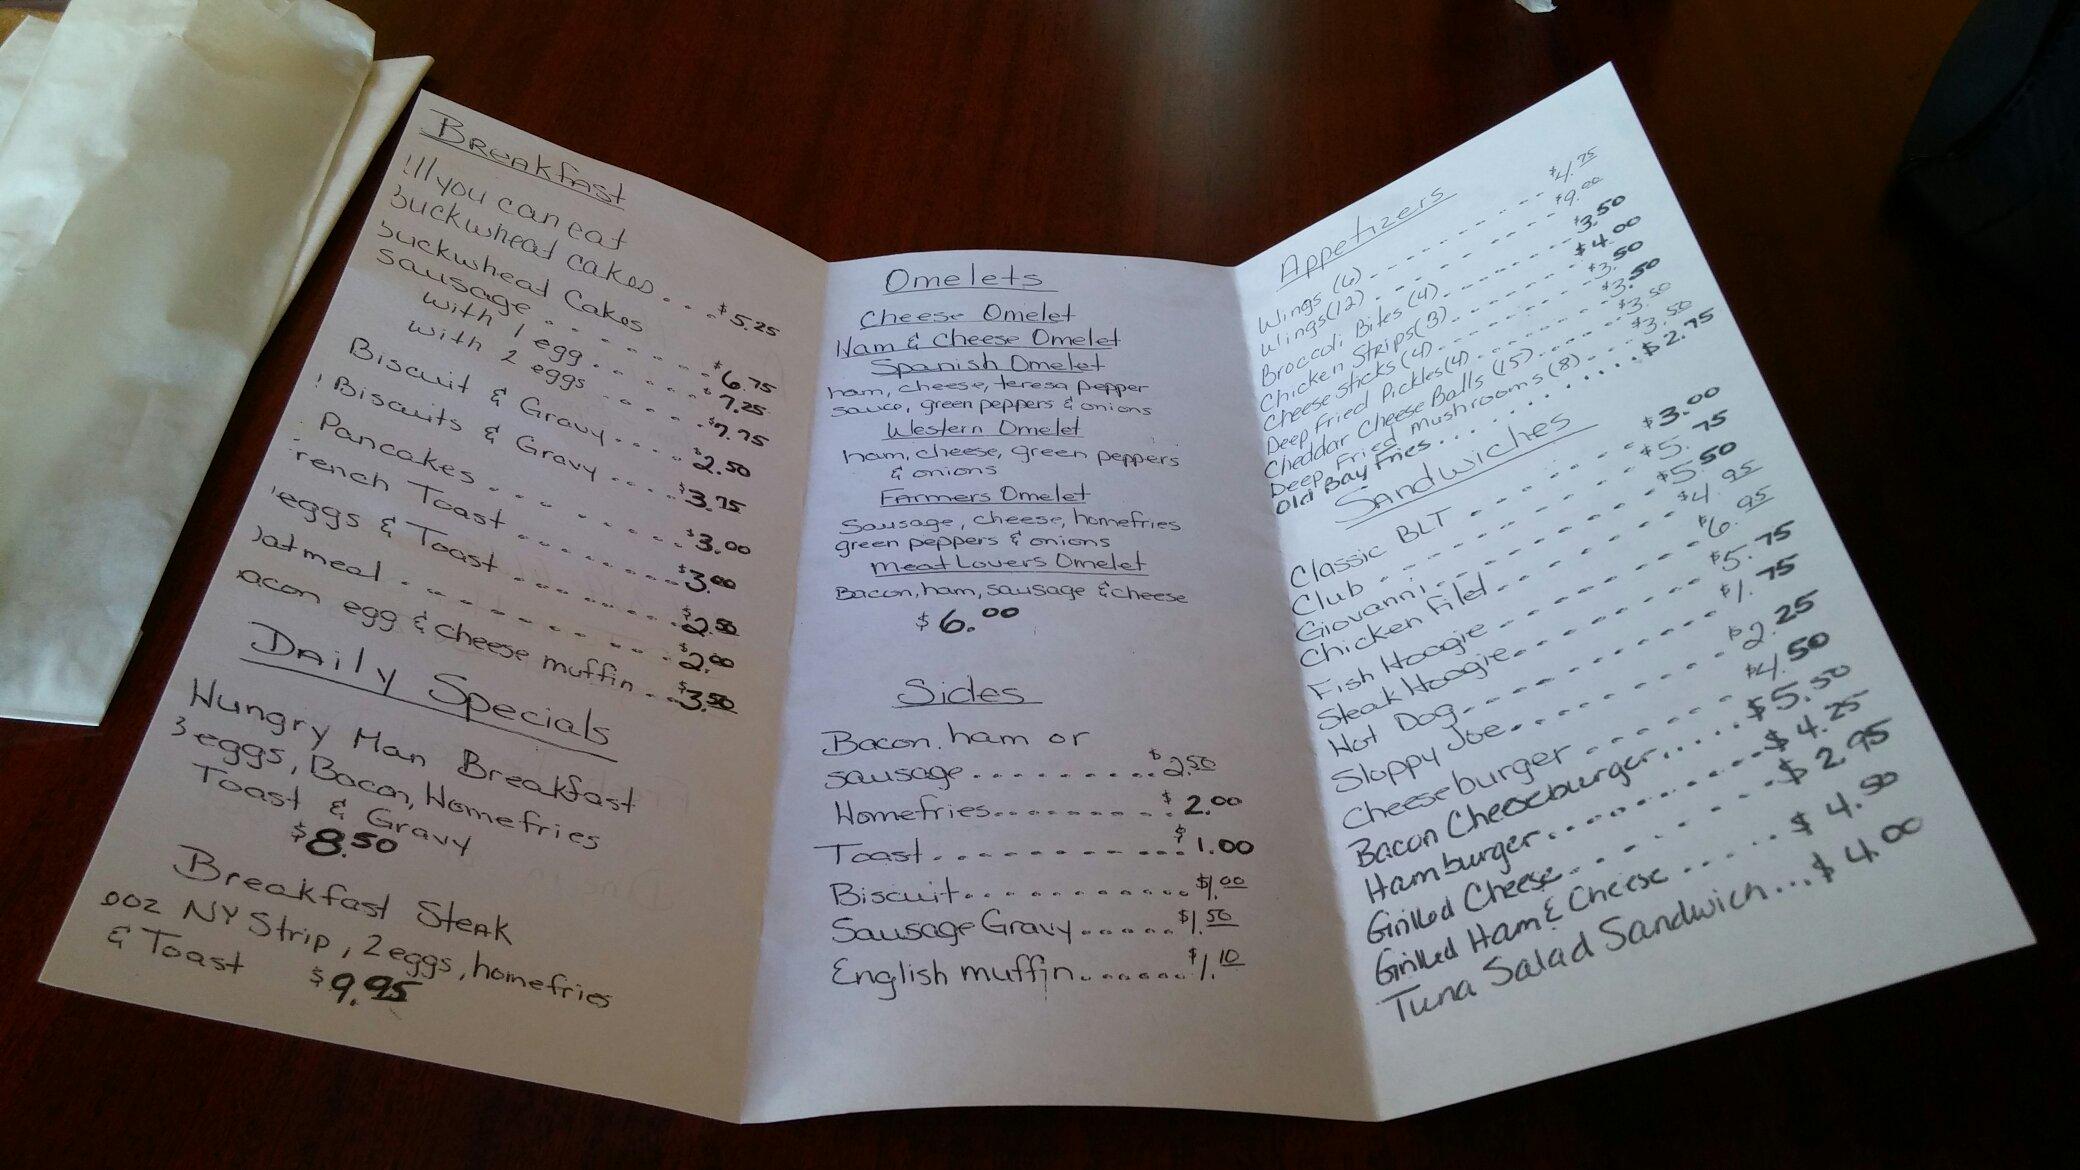 Breakfast
!ll you can eat
Buckwheat cakes... $5.25
Buckwheat Cakes
Sausage ....... $6.75
with 1 egg...... $7.25
with 2 eggs .... $7.75
Biscuit & Gravy... $2.50
Biscuits & Gravy.... $3.75
Pancakes ........ $3.00
rench Toast ........ $3.00
eggs & Toast ........ $2.50
oatmeal ............ $2.00
acon egg & cheese muffin .. $3.50
Daily Specials
Hungry Man Breakfast
3 eggs, Bacon, Homefries
Toast & Gravy
$8.50
Breakfast Steak
oz NY Strip, 2 eggs, homefries
& Toast $9.95
Omelets
Cheese Omelet
Ham & Cheese Omelet
Spanish Omelet
ham, cheese, teresa pepper
sauce, green peppers & onions
Western Omelet
ham, cheese, green peppers
& onions
Farmers Omelet
Sausage, cheese, homefries
green peppers & onions
Meat Lovers Omelet
Bacon, ham, sausage & cheese
$6.00
Sides
Bacon. ham or
sausage.......... $2.50
Homefries.......... $2.00
Toast............ $1.00
Biscuit............ $1.00
Sausage Gravy...... $1.50
English muffin....... $1.10
Appetizers
Wings (6)............ $4.75
Wings (12)............ $9.00
Broccoli Bites (4)......... $3.50
Chicken Strips (3)......... $4.00
Cheese Sticks (4)......... $3.50
Deep Fried Pickles (4)....... $3.50
Cheddar Cheese Balls (15)...... $3.50
Deep Fried mushrooms (8)..... $3.50
Old Bay Fries............ $2.75
Sandwiches
Classic BLT ......... $3.00
Club ............ $5.75
Giovanni........... $5.50
Chicken Filet......... $4.95
Fish Hoagie......... $6.95
Steak Hoagie......... $5.75
Hot Dog........... $1.75
Sloppy Joe......... $2.25
Cheeseburger ........ $4.50
Bacon Cheeseburger...... $5.50
Hamburger......... $4.25
Grilled Cheese........ $2.95
Grilled Ham & Cheese...... $4.50
Tuna Salad Sandwich... $4.00